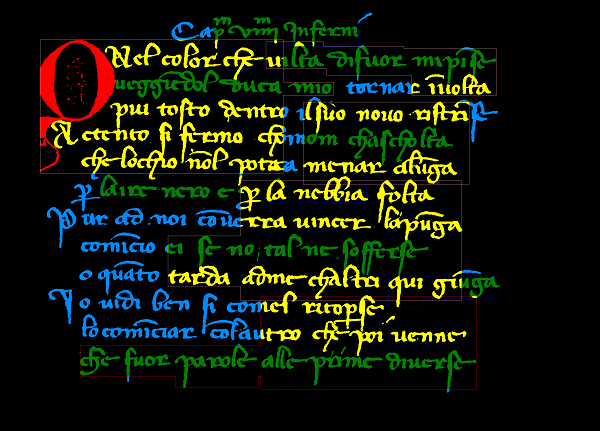 Cap̄ᵐ viiiiᵐ Inferni
QUel color che uilta difuor mi pīse
ueggiēdol duca mio tornar ī uolta
piu tosto dentro il suo nouo ristrīse
Attento si fermo chomom chascholta
che lochio nōl potea menar alūga
p̄ laire nero e p̄ la nebbia folta
Pur ad noi cōuerra uincer la pūga
comīcio ei se no, tal ne sofferse
o quāto tarda adme chaltri qui giūga
Io uidi ben si comel ricop̄se
lo comīciar colautro che poi uenne
che fuor parole alle prime diuerse